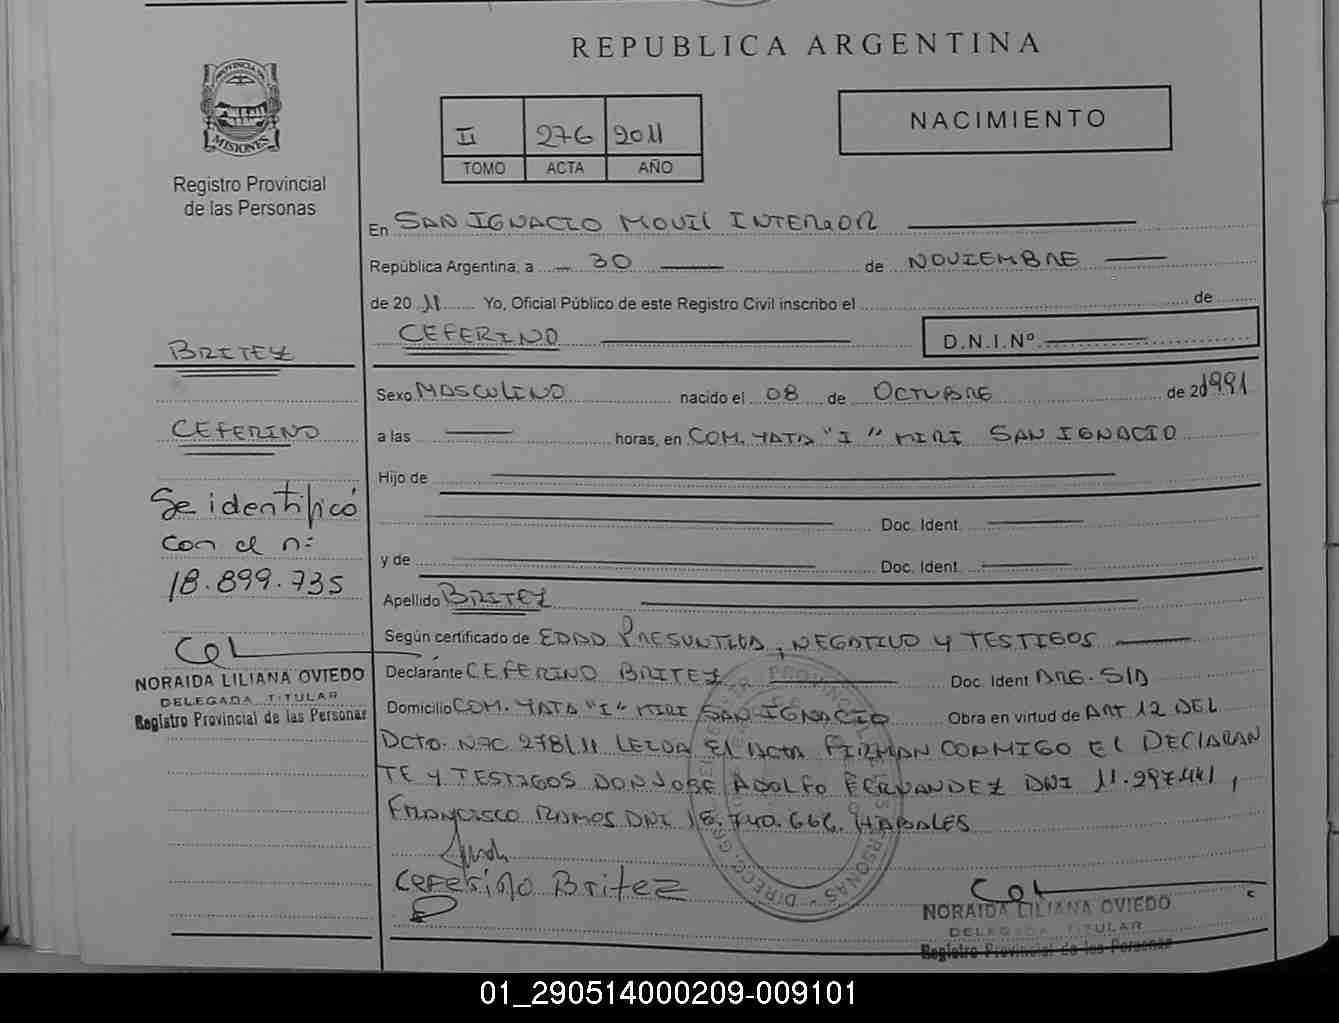 REPUBLICA ARGENTINA
PROVINCIA DE
MISIONES
Registro Provincial
de las Personas
II 276 2011
TOMO ACTA AÑO
NACIMIENTO
En SAN IGNACIO MOVIL INTERIOR
República Argentina, a 30 de NOVIEMBRE
de 20 11 Yo, Oficial Público de este Registro Civil inscribo el de
CEFERINO
D.N.I.Nº
BRITEZ
CEFERINO
Se identificó
con el nº
18.899.735
NORAIDA LILIANA OVIEDO
DELEGADA TITULAR
Registro Provincial de las Personas
Sexo MASCULINO nacido el 08 de OCTUBRE de 20 1991
a las horas, en COM. YATA "I" MIRI SAN IGNACIO
Hijo de
Doc. Ident.
y de Doc. Ident.
Apellido BRITEZ
Según certificado de EDAD PRESUNTIVA, NEGATIVO Y TESTIGOS
Declarante CEFERINO BRITEZ Doc. Ident ARG. S/D
Domicilio COM. YATA "I" MIRI SAN IGNACIO Obra en virtud de ART 12 DEL
DCTO. NAC 278/11 LEIDA EL ACTA FIRMAN CONMIGO EL DECLARAN
TE Y TESTIGOS DON JOSE ADOLFO FERNANDEZ DNI 11.297.441,
FRANCISCO RAMOS DNI HABALES
Ceferino Britez
NORAIDA LILIANA OVIEDO
DELEGADA TITULAR
Registro Provincial de las Personas
01_290514000209-009101